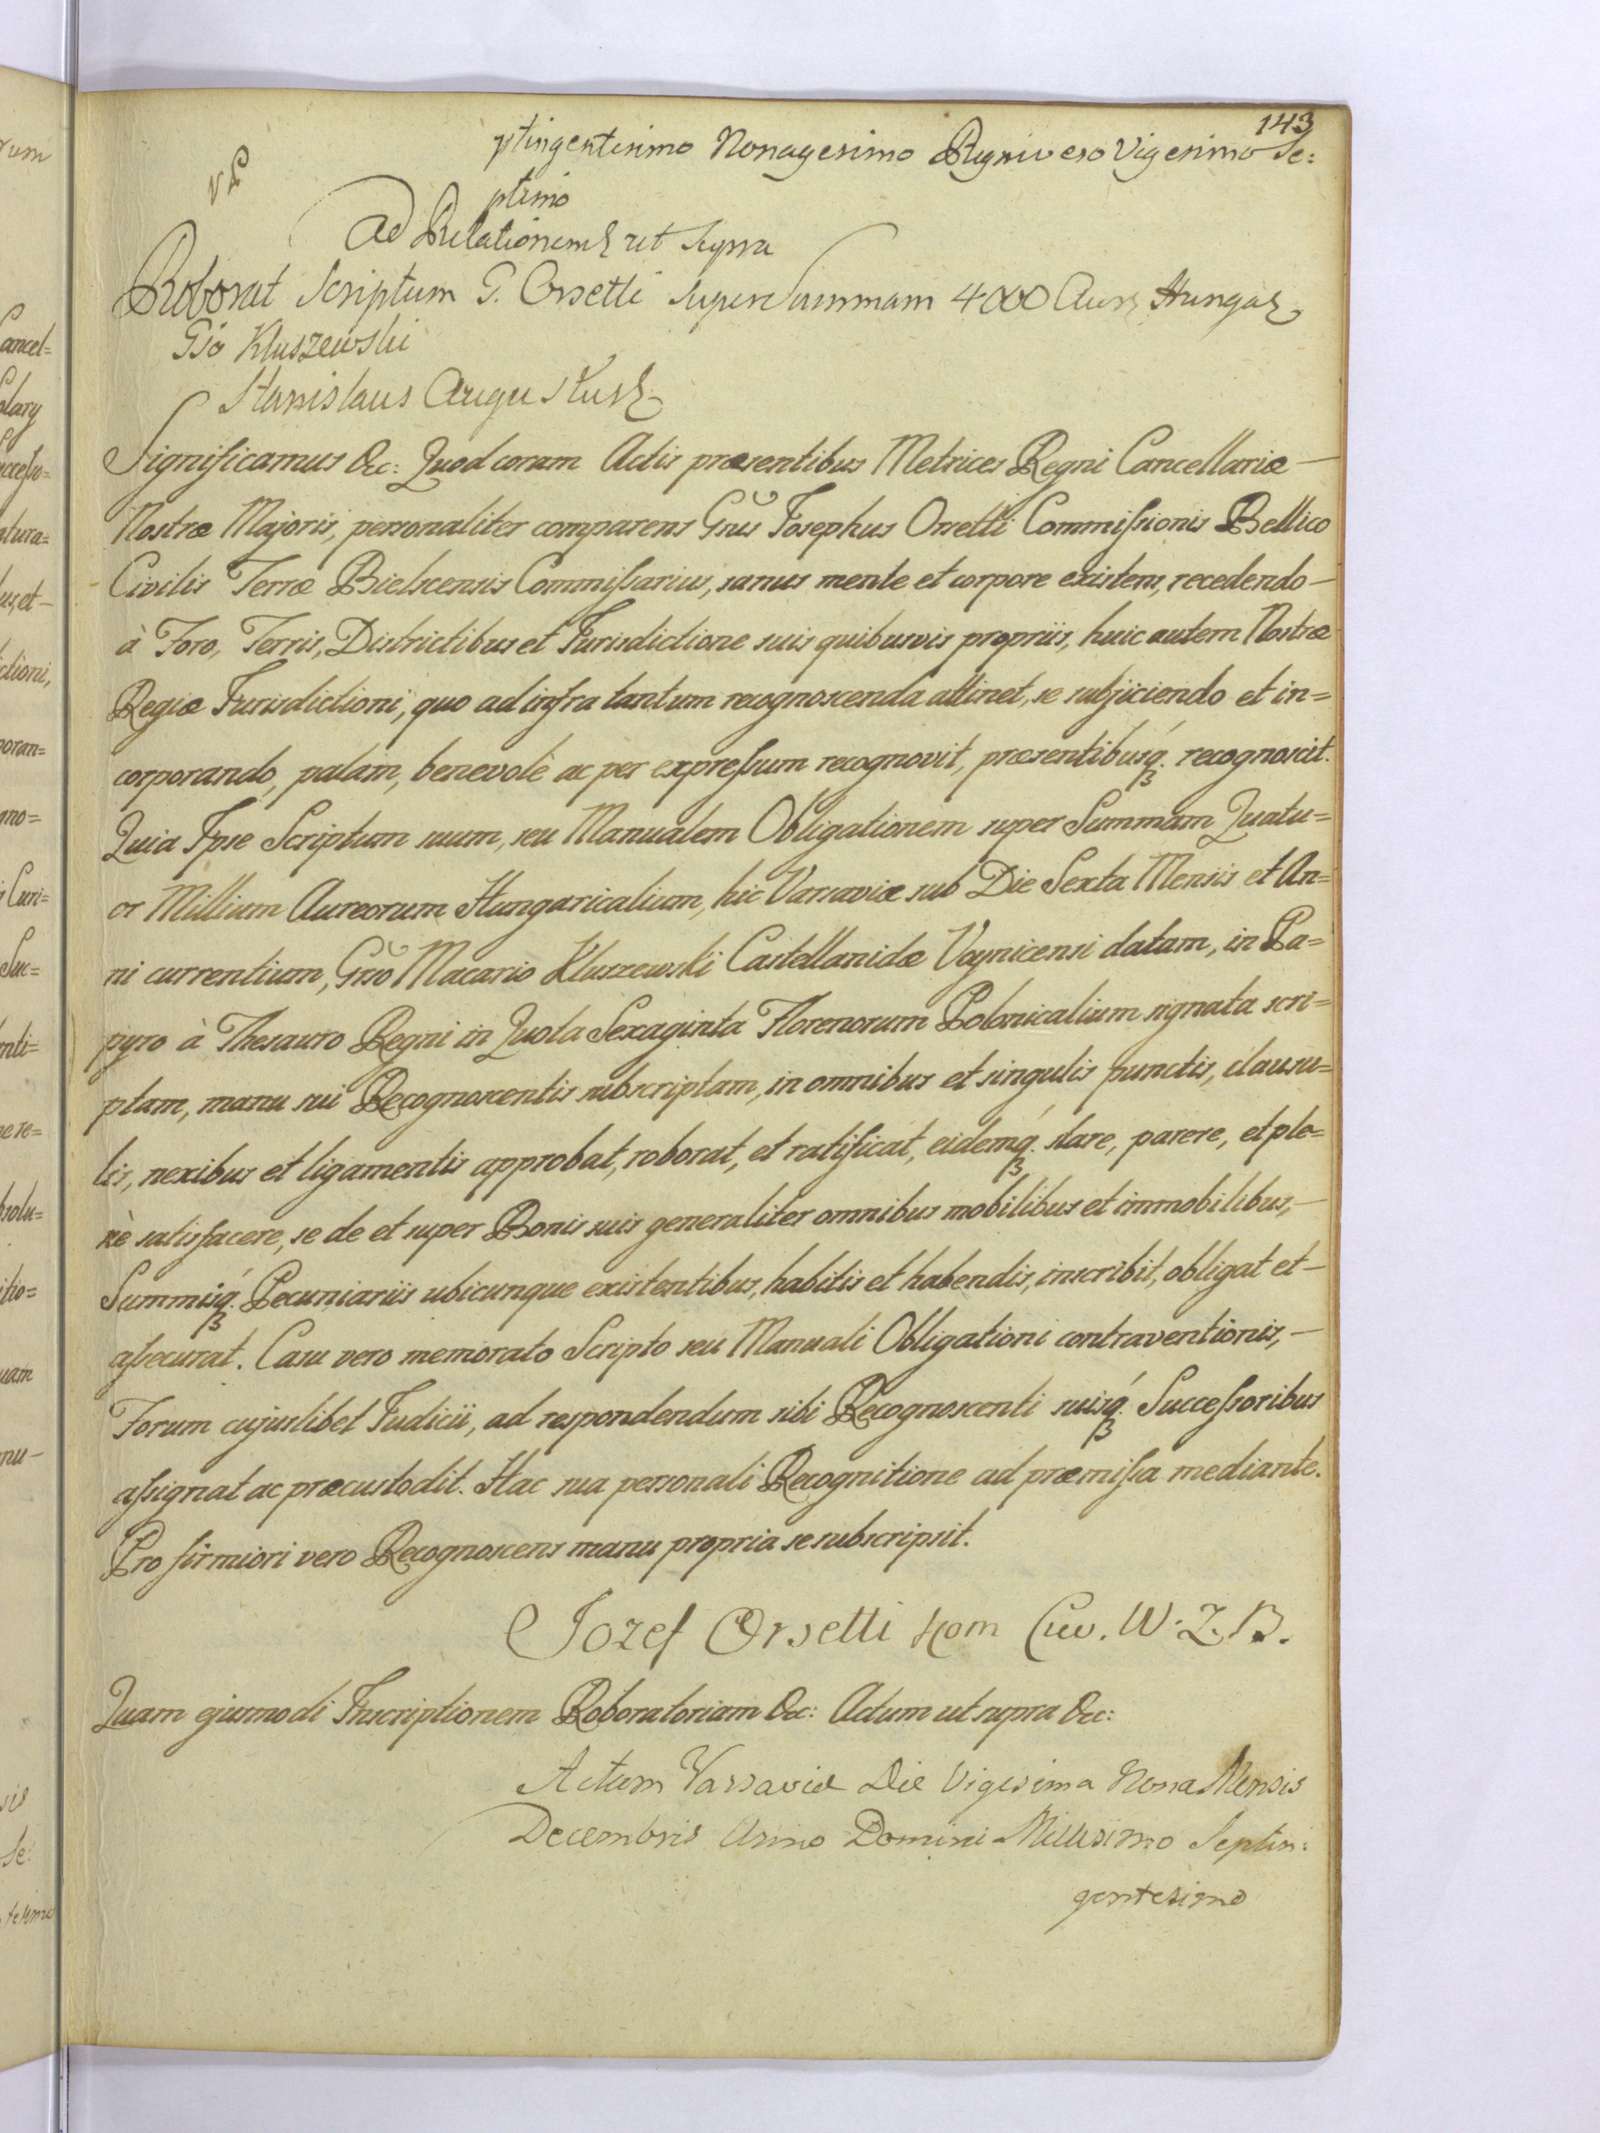 143
ptingentesimo Nonagesimo Regni vero Vigesimo Se:
ptimo
Ad Relationem ut Supra
Roborat Scriptum G. Orsetti Super Summam 4000 Aur. Hungar.
Gso Kluszewski
Stanislaus Augustus
Significamus &c: Quod coram Actis præsentibus Metrices Regni Cancellariæ —
Nostræ Majoris, personaliter comparens Gnus Josephus Orsetti Commissionis Bellico
Civilis Terræ Bielscensis Commissarius, sanus mente et corpore existens, recedendo —
à Foro, Terris, Districtibus et Jurisdictione suis quibusvis propriis, huic autem Nostræ
Regiæ Jurisdictioni, quo ad infra tantum recognoscenda attinet, se subjiciendo et in=
corporando, palam, benevolè ac per expressum recognovit, præsentibusq. recognoscit.
Quia Ipse Scriptum suum, seu Manualem Obligationem super Summam Quatu=
or Millium Aureorum Hungaricalium, hic Varsaviæ sub Die Sexta Mensis et An=
ni currentium, Gso Macario Kluszewski Castellanidæ Voynicensi datam, in Pa=
pyro à Thesauro Regni in Quota Sexaginta Florenorum Polonicalium signata scri=
ptam, manu sui Recognoscentis subscriptam, in omnibus et singulis punctis, clausu=
lis, nexibus et ligamentis approbat, roborat, et ratificat, eidemq. stare, parere, et ple=
nè satisfacere, se de et super Bonis suis generaliter omnibus mobilibus et immobilibus, —
Summisq. Pecuniariis ubicunque existentibus, habitis et habendis, inscribit, obligat et —
assecurat. Casu vero memorato Scripto seu Manuali Obligationi contraventionis, —
Forum cujuslibet Judicii, ad respondendum sibi Recognoscenti suisq. Successoribus
assignat ac præcustodit. Hac sua personali Recognitione ad præmissa mediante.
Pro firmiori vero Recognoscens manu propria se subscripsit.
Jozef Orsetti Kom Cuv. W. Z. B.
Quam ejusmodi Inscriptionem Roboratoriam &c: Actum ut supra &c:
Actum Varsaviæ Die Vigesima Nona Mensis
Decembris Anno Domini Millesimo Septin:
gentesimo